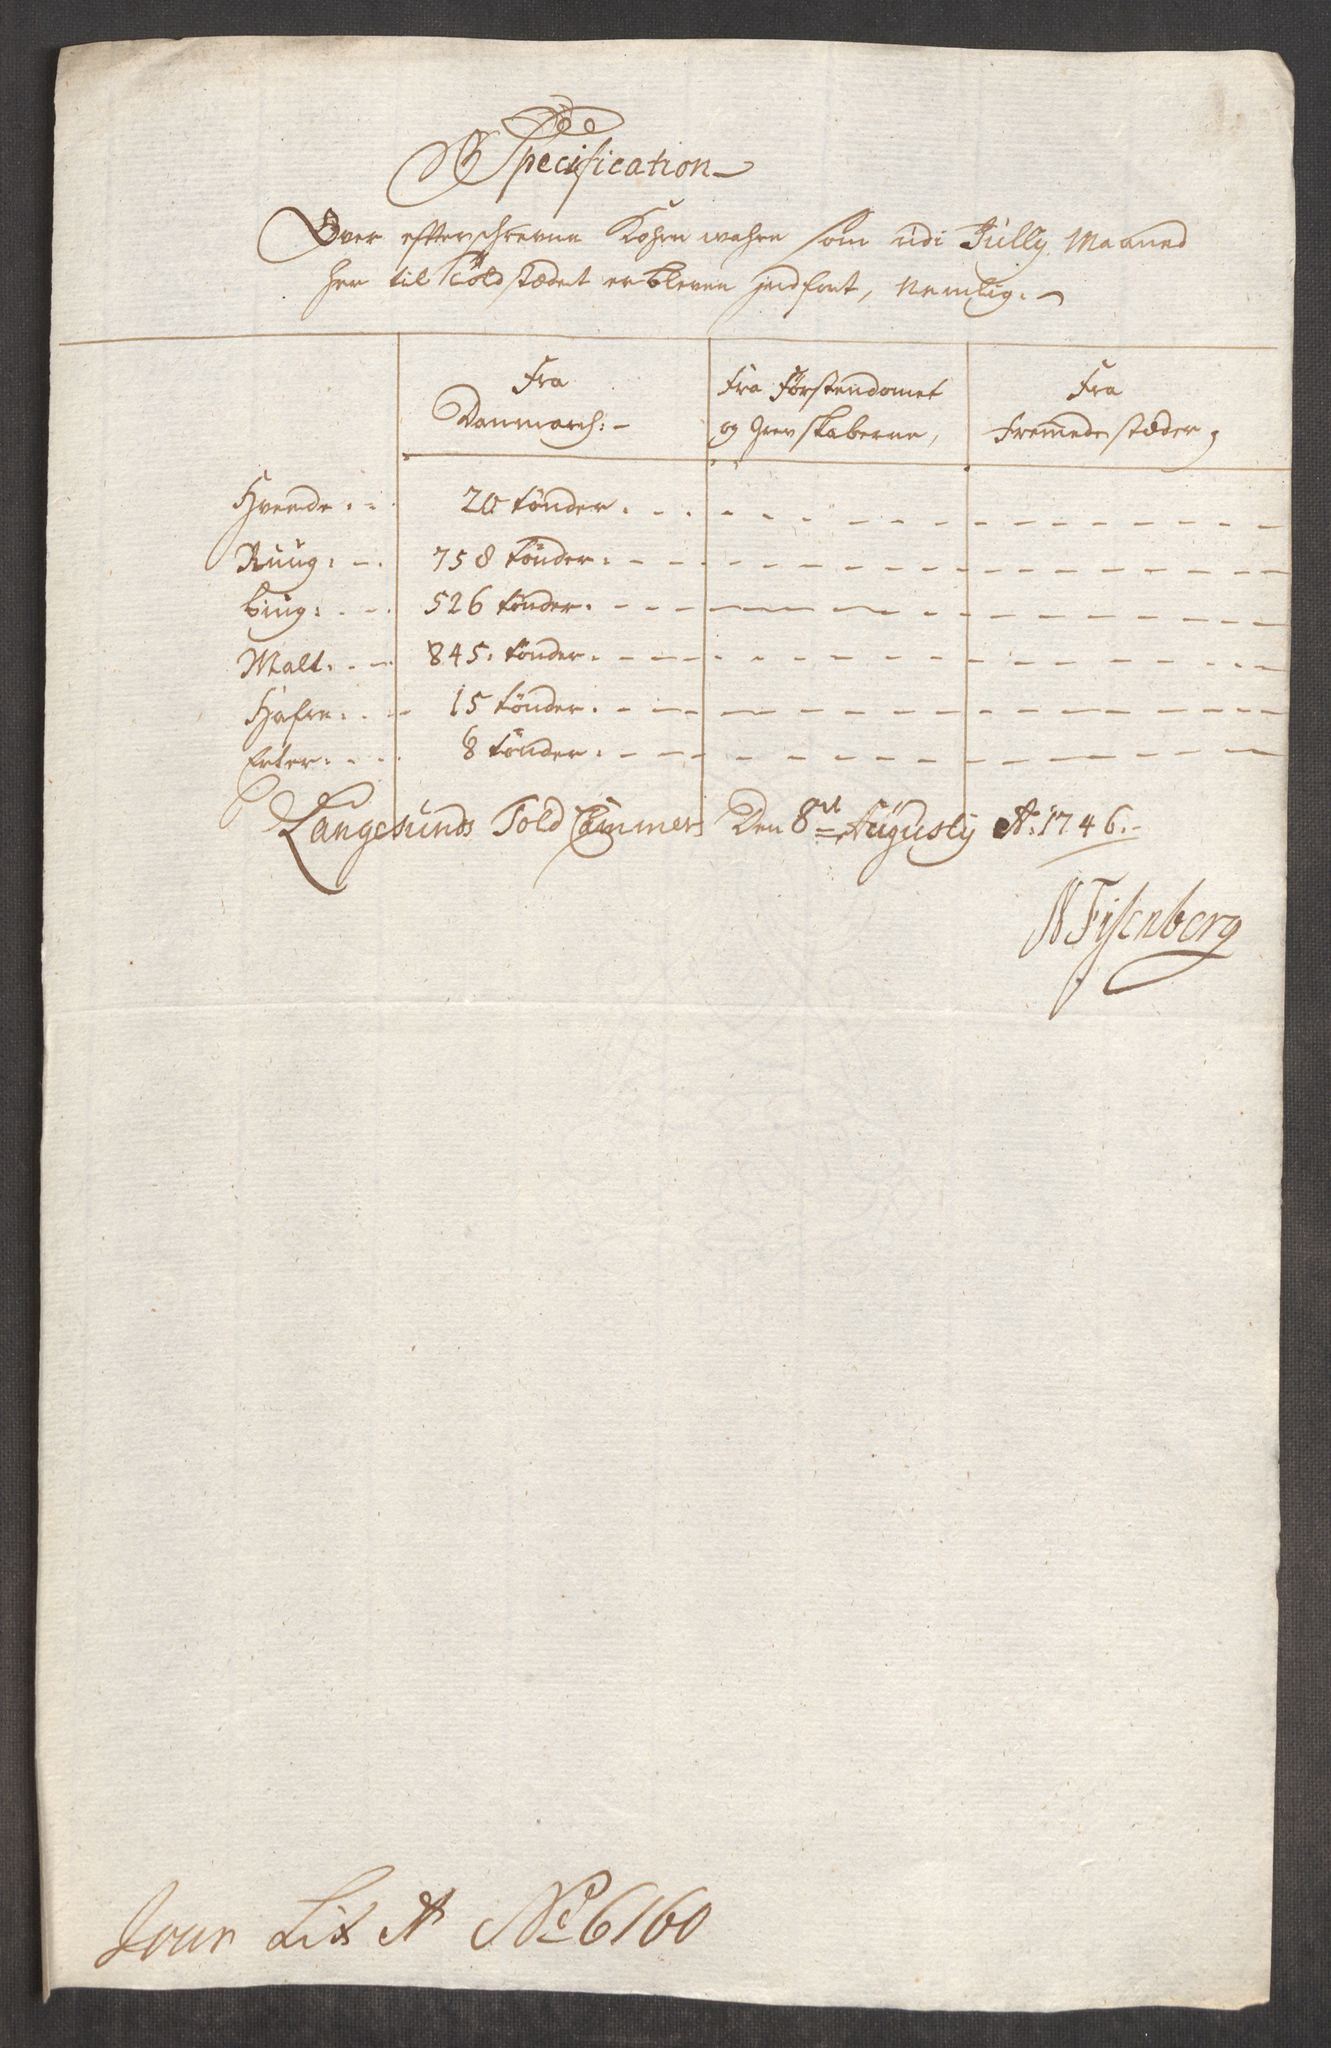 Specification
Over efterschrevne Kohrn wahre som udi Jully Maaned
her til Toldstædet er bleven indfört, Nemlig.
Fra Danmarch:
Fra Förstendomet og Grevskaberne,
Fra Fremmede stæder,
Hvede. 20 tönder.
Ruug: 758 tönder.
Biug: 526 tönder.
Malt. 845. tönder.
Hafre. 15 tönder.
Erter. 8 tönder.
Langesunds Told Cammer Den 8de Augusty Ao: 1746.
N Fisenberg
Jour Lit A No 6160